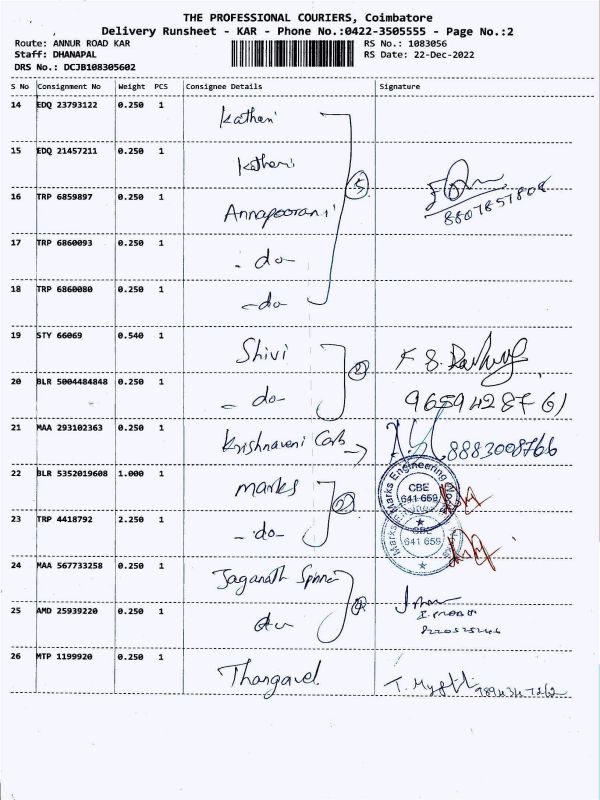 THE PROFESSIONAL COURIERS, Coimbatore
Delivery Runsheet - KAR - Phone No.:0422-3505555 - Page No.:2
Route: ANNUR ROAD KAR
RS No.: 1083056
Staff: DHANAPAL
RS Date: 22-Dec-2022
DRS No.: DCJB108305602
S No Consignment No Weight PCS Consignee Details Signature
14 EDQ 23793122 0.250 1 Katheri
15 EDQ 21457211 0.250 1 Katheri
5
16 TRP 6859897 0.250 1 Annapoorani
8807857808
17 TRP 6860093 0.250 1 - do -
18 TRP 6860080 0.250 1 - do -
19 STY 66069 0.540 1 Shivi
2
20 BLR 5004484848 0.250 1 - do -
21 MAA 293102363 0.250 1 Krishnaveni Carb 8883008766
22 BLR 5352019608 1.000 1 marks
2
Marks Engineering Works
CBE
641 659
23 TRP 4418792 2.250 1 - do -
CBE
641 659
24 MAA 567733258 0.250 1 Jaganath Spinne
25 AMD 25939220 0.250 1 do
26 MTP 1199920 0.250 1 Thangavel